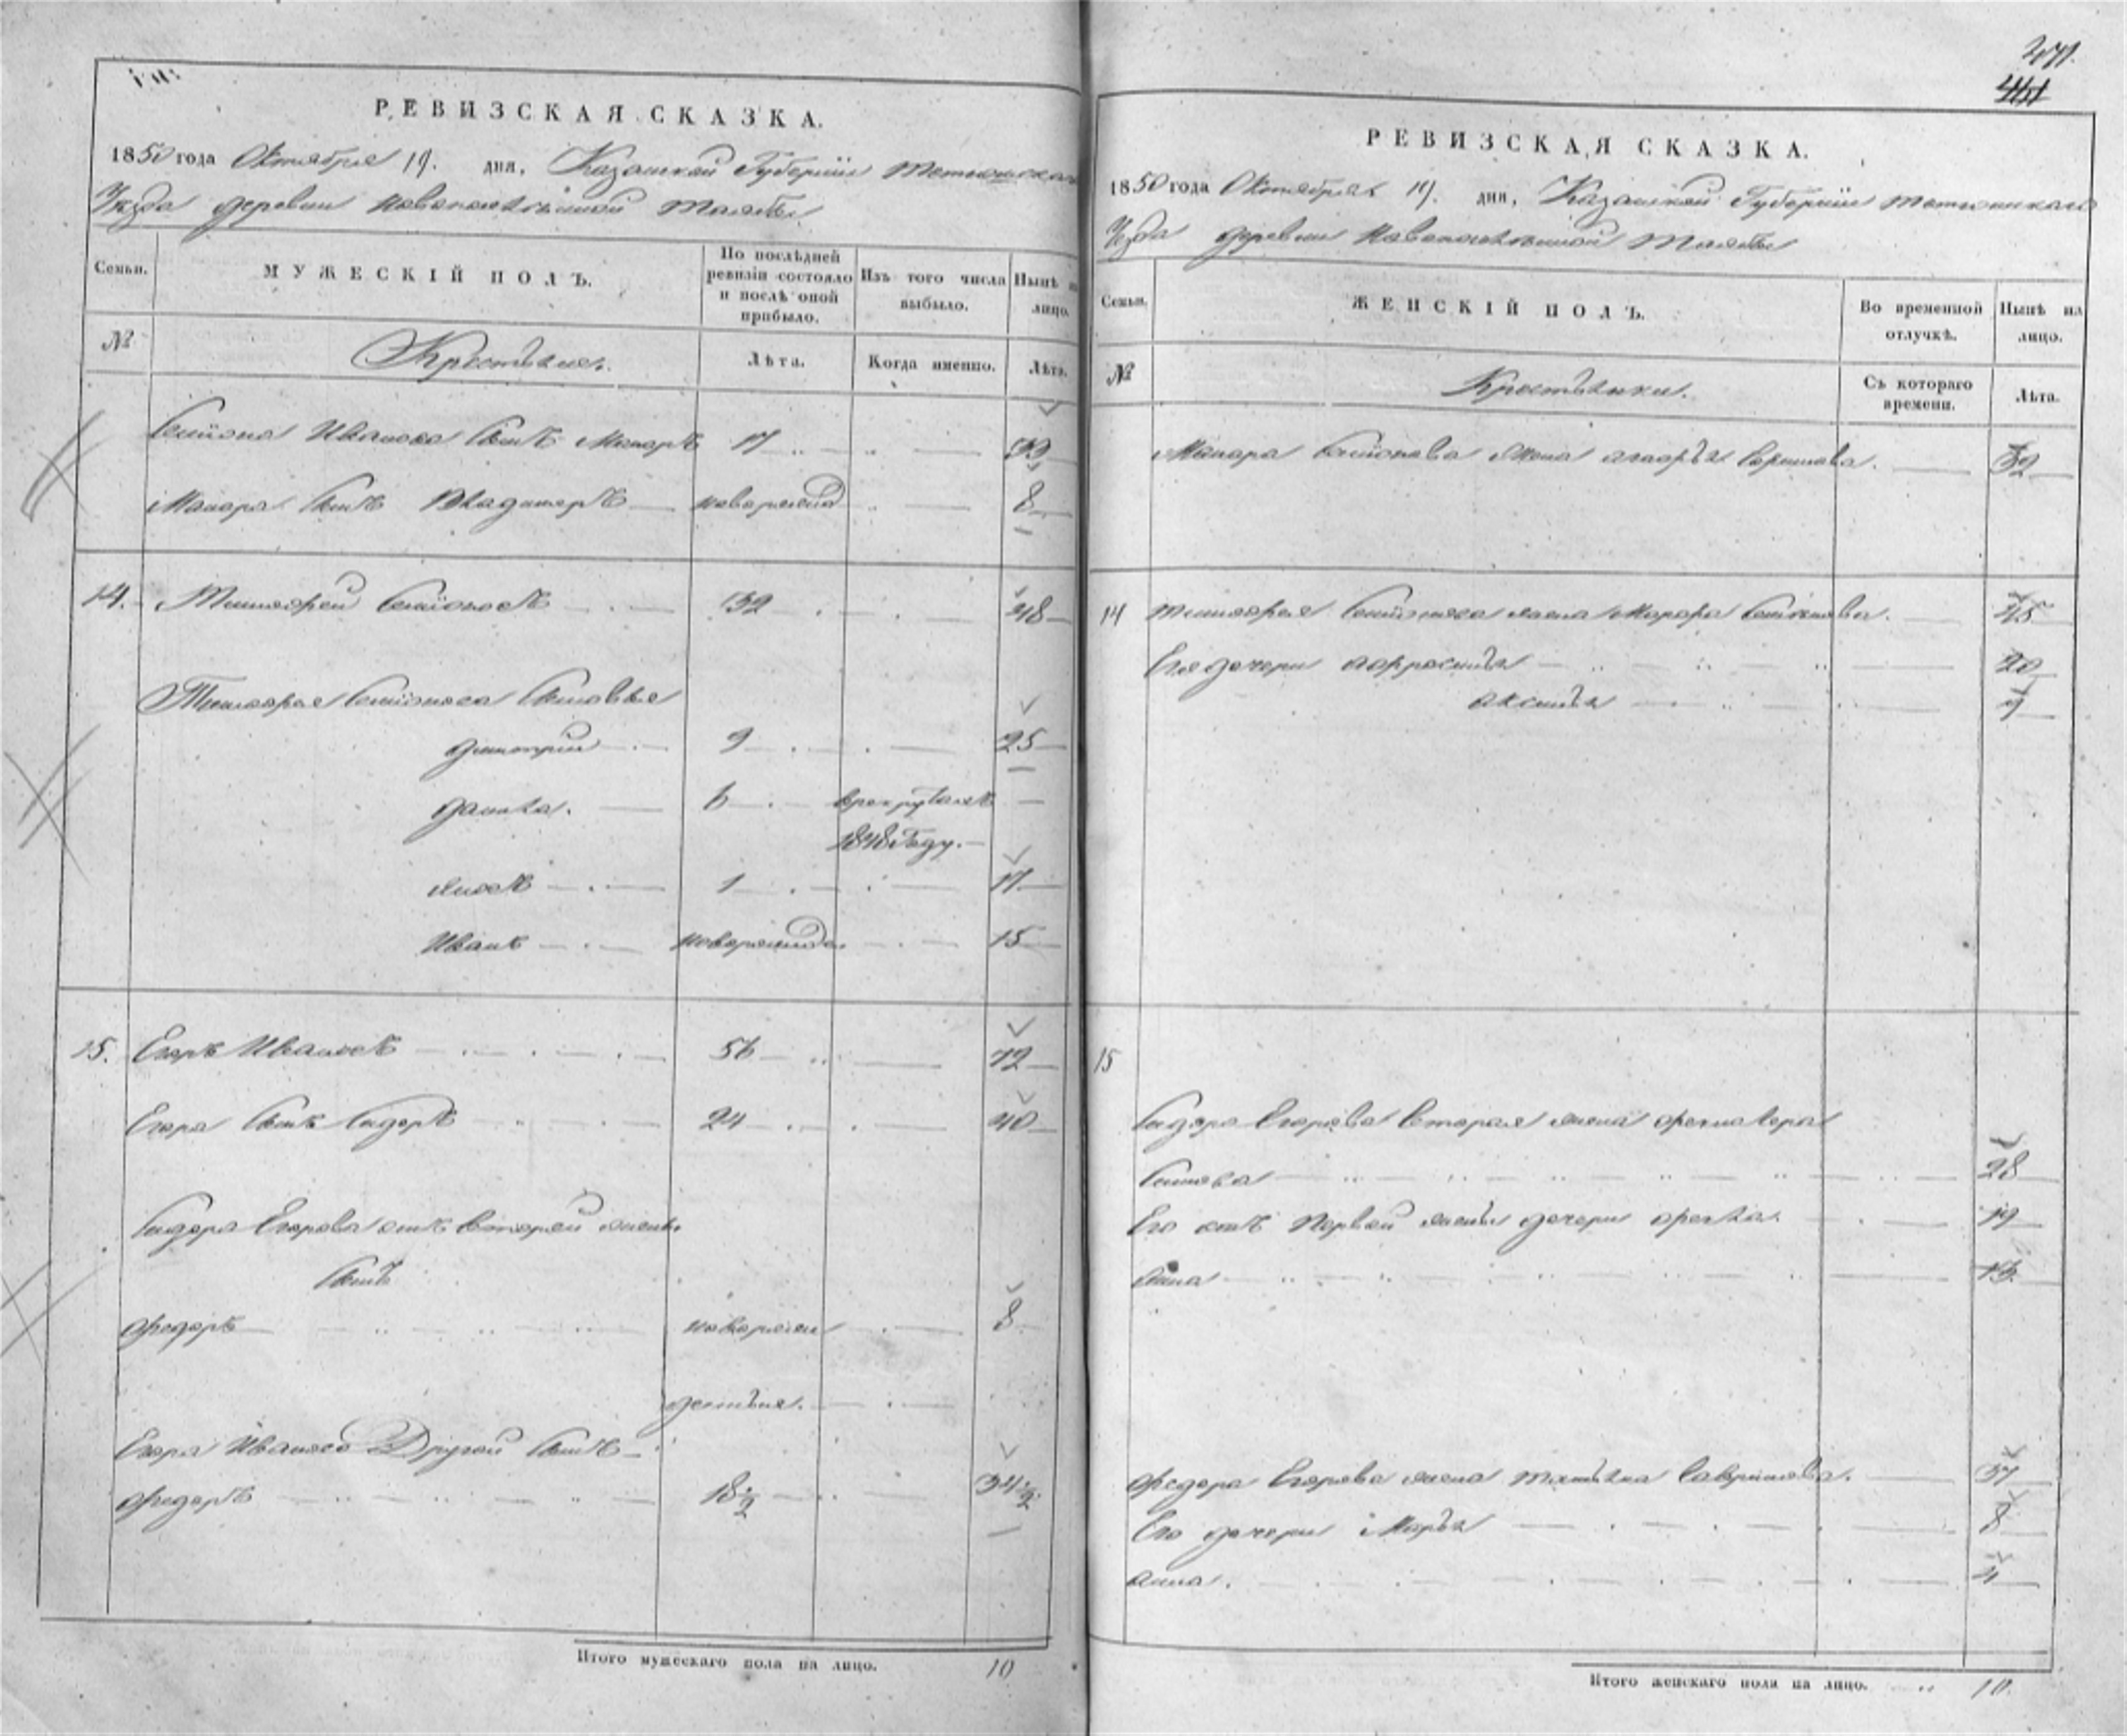 271.
РЕВИЗСКАЯ СКАЗКА.
1850 года Октября 19. дня, Казанской Губерніи Тетюшскаго
Уѣзда деревни Новопоселѣнной
Семьи. МУЖЕСКІЙ ПОЛЪ. По послѣдней ревизіи состояло и послѣ оной прибыло. Изъ того числа выбыло. Нынѣ на лицо.
№ Крестьяне. Лѣта. Когда именно. Лѣта.
Семіона Иванова сынъ Макаръ 17 33
Макара сынъ Владимеръ новорожд 8
14. Тимофей Семіоновъ 32 48
Тимофея Семіонова сыновья
Дмитрій 9 25
Данила. 6 врекрутахъ
1848 Году.
Яковъ 1 17
Иванъ новорожде 15
15. Егоръ Ивановъ 56 72
Егора сынъ Сидоръ 24 40
Сидора Егорова отъ второй жены
сынъ
Федоръ новорожен 8
Егора Иванова Другой сынъ
Федоръ 18 1/2 34 1/2
Итого мужескаго пола на лицо. 10
РЕВИЗСКАЯ СКАЗКА.
1850 года Октября 19. дня, Казанской Губерніи Тетюшскаго
Уѣзда деревни Новопоселѣнной
Семьи. ЖЕНСКІЙ ПОЛЪ. Во временной отлучкѣ. Нынѣ на лицо.
№ Крестьянки. Съ котораго времени. Лѣта.
Макара Семіонова жена 32
14 Тимофея Семіонова жена Марфа Семіонова. 45
Его дочери 20
Аксинья 9
15
Сидора Егорова вторая жена
28
Его отъ Первой жены дочери 19
Анна
Федора Егорова жена Татьяна Гаврилова. 37
Его дочери Марья 8
Анна. 4
Итого женскаго пола на лицо. 10.